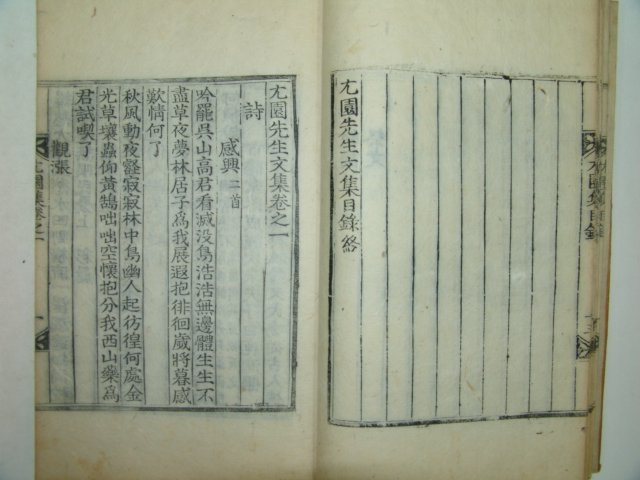 尢園先生文集目錄終
尢園先生文集卷之一
詩
感興二首
吟罷吳山高君看滅没鳥浩浩無邊體生生不
盡草夜夢林居子爲我展遐抱徘徊歲將暮感
歎情何了
秋風動夜壑寂寂林中鳥幽人起彷徨何處金
光草壤蟲仰黃鵠咄咄空懷抱分我西山藥爲
君試喫了
觀漲